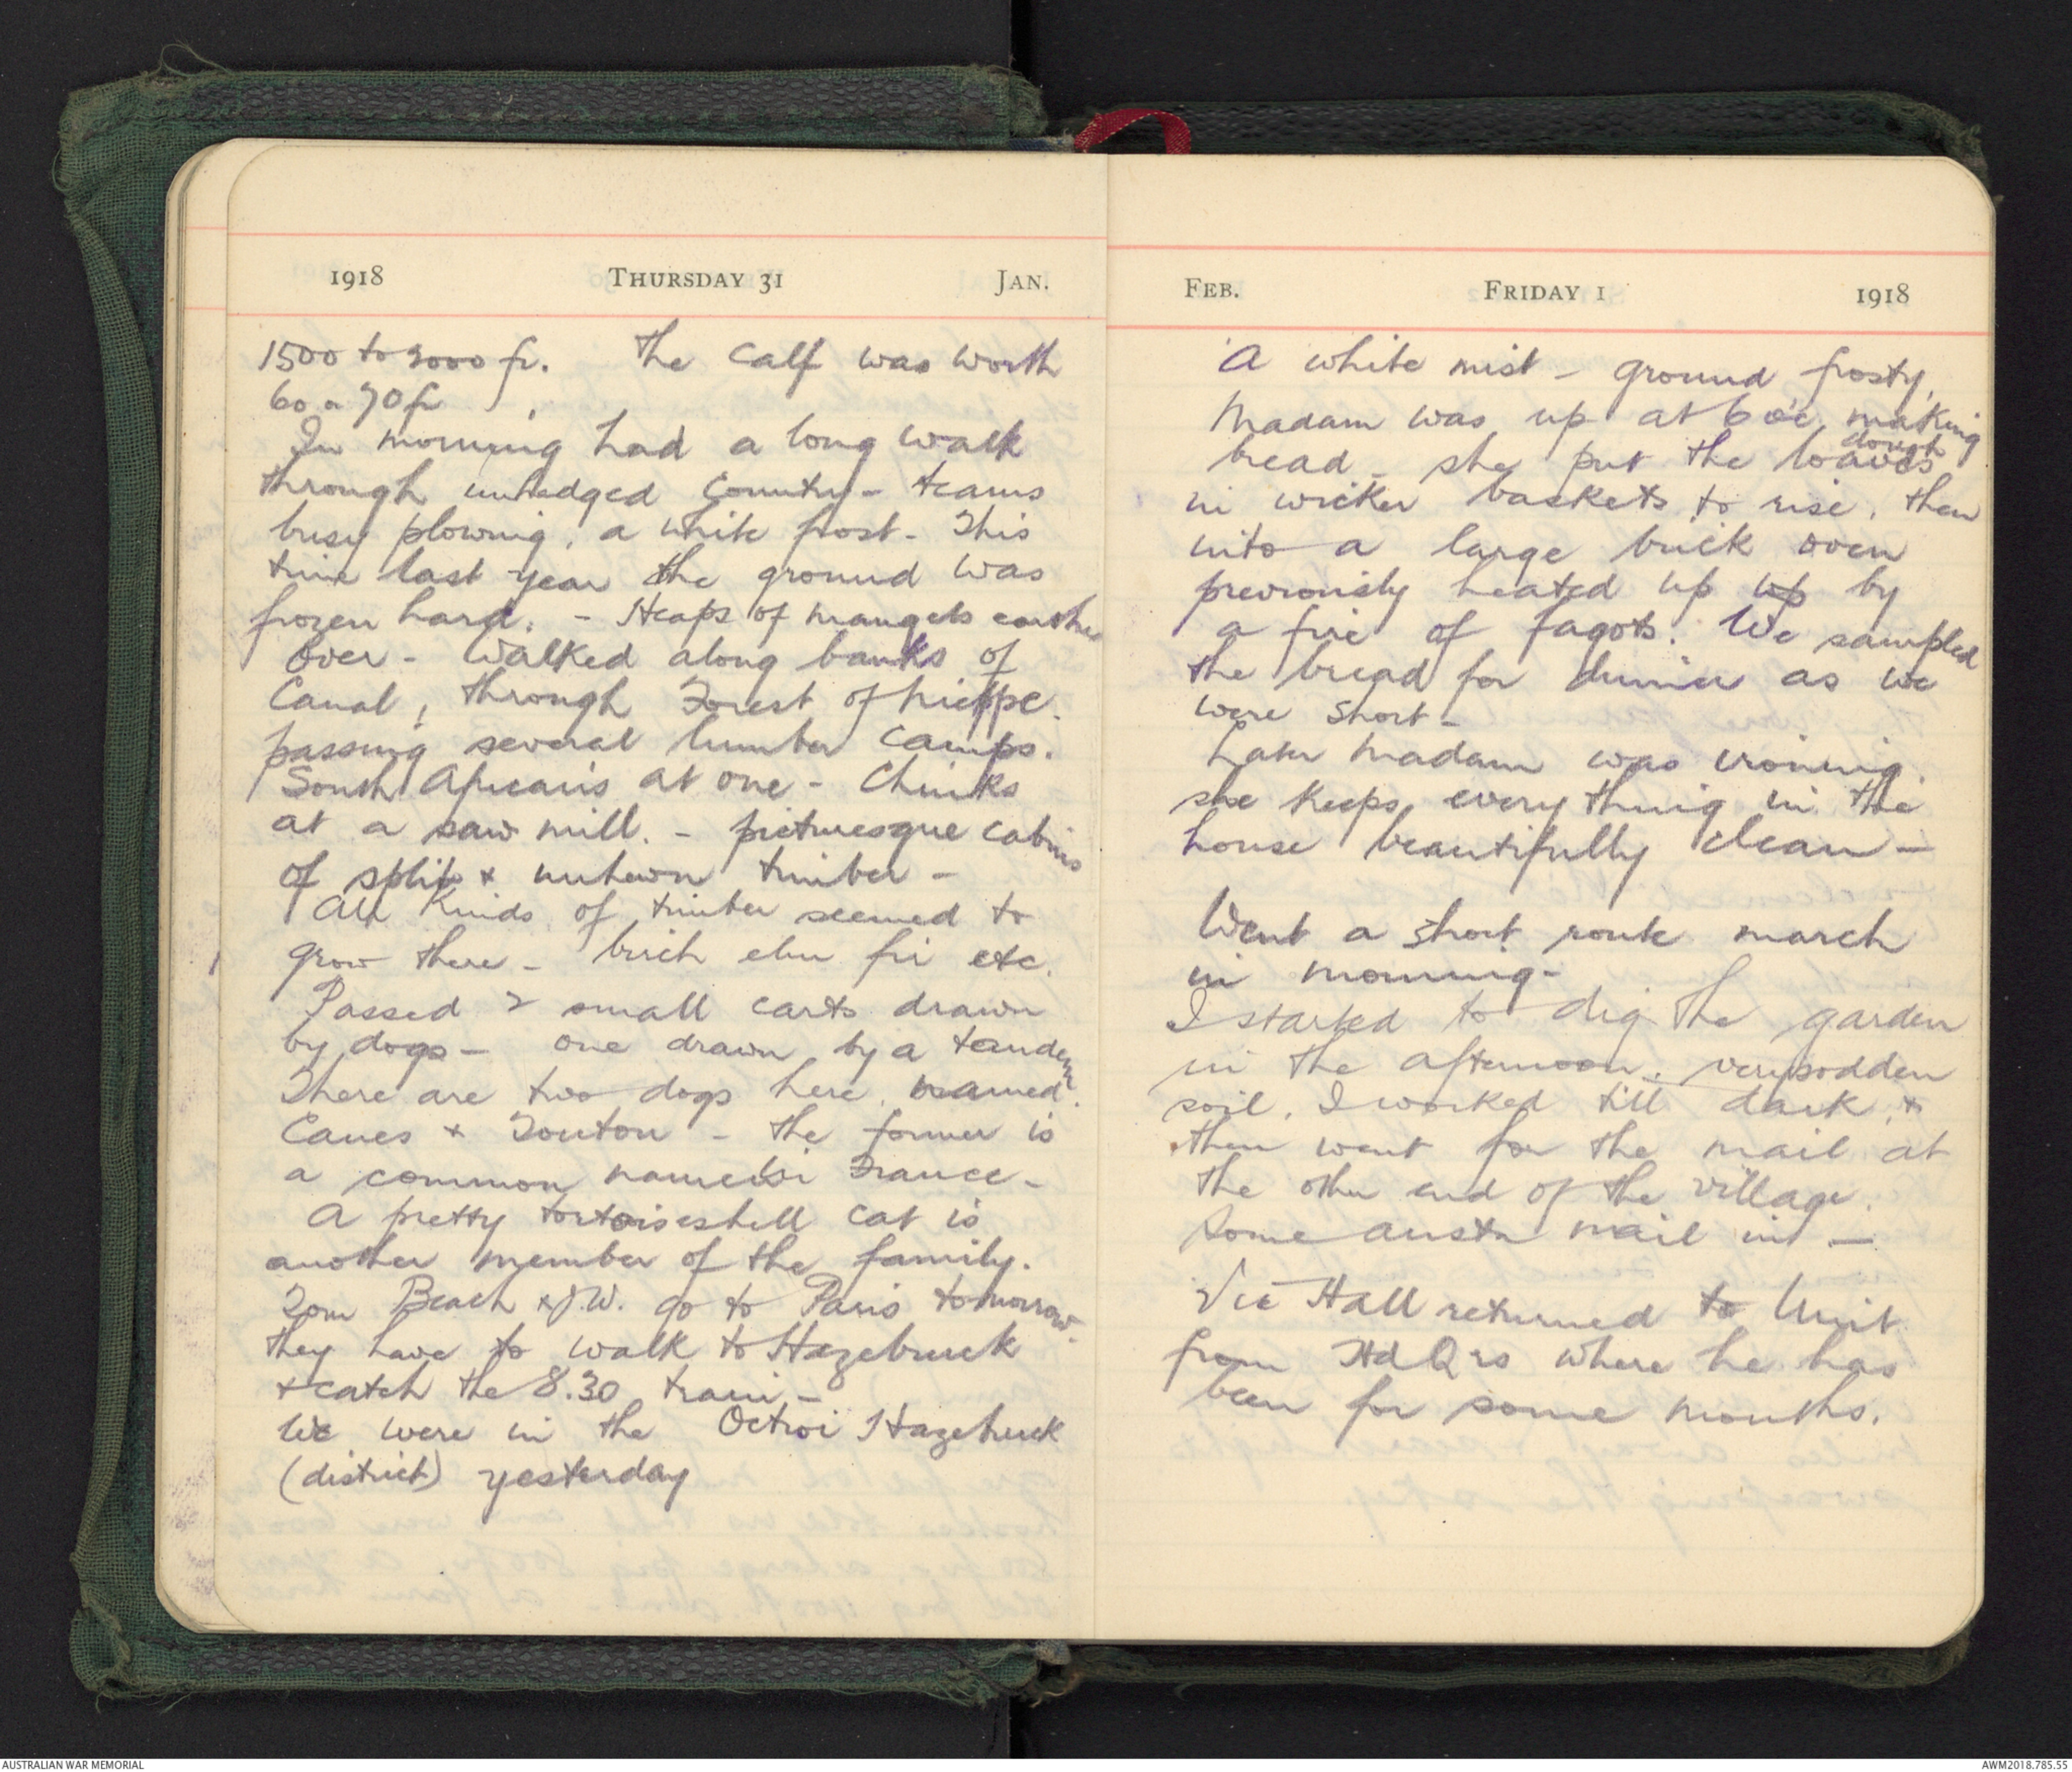 1918 THURSDAY 31 JAN.
1500 to 2000 fr. The calf was worth
60 a 70 fr
In morning had a long walk
through unhedged country - teams
busy plowing, a white frost - This
time last year the ground was
frozen hard. - Heaps of mangels earthed
over - Walked along banks of
Canal, through Forest of Nieppe
passing several lumber camps.
South Africans at one - Chinks
at a saw mill. - picturesque cabins
of split & unhewn timber -
All kinds of timber seemed to
grow there - birch elm fir etc.
Passed 2 small carts drawn
by dogs - one drawn by a tandem
There are two dogs here, named
& Touton - the former is
a common name in France -
A pretty tortoiseshell cat is
another member of the family.
Tom Beach & J.W. go to Paris tomorrow.
they have to walk to Hazebruck
& catch the 8.30 train -
We were in the Octroi Hazebruck
(district) yesterday
FEB. FRIDAY 1 1918
A white mist - ground frosty,
Madam was up at 6 oc making
dough
bread - she put the loaves
in wicker baskets to rise, then
into a large brick oven
previously heated up up by
a fire of fagots. We sampled
the bread for dinner as we
were short -
Later Madam was ironing.
she keeps everything in the
house beautifully clean -
Went a short route march
in morning -
I started to dig the garden
in the afternoon. very sodden
soil. I worked till dark, &
then went for the mail at
the other end of the village.
Some austn mail in -
Vic Hall returned to Unit
from Hd Qrs where he has
been for some months.
AUSTRALIAN WAR MEMORIAL
AWM2018.785.55